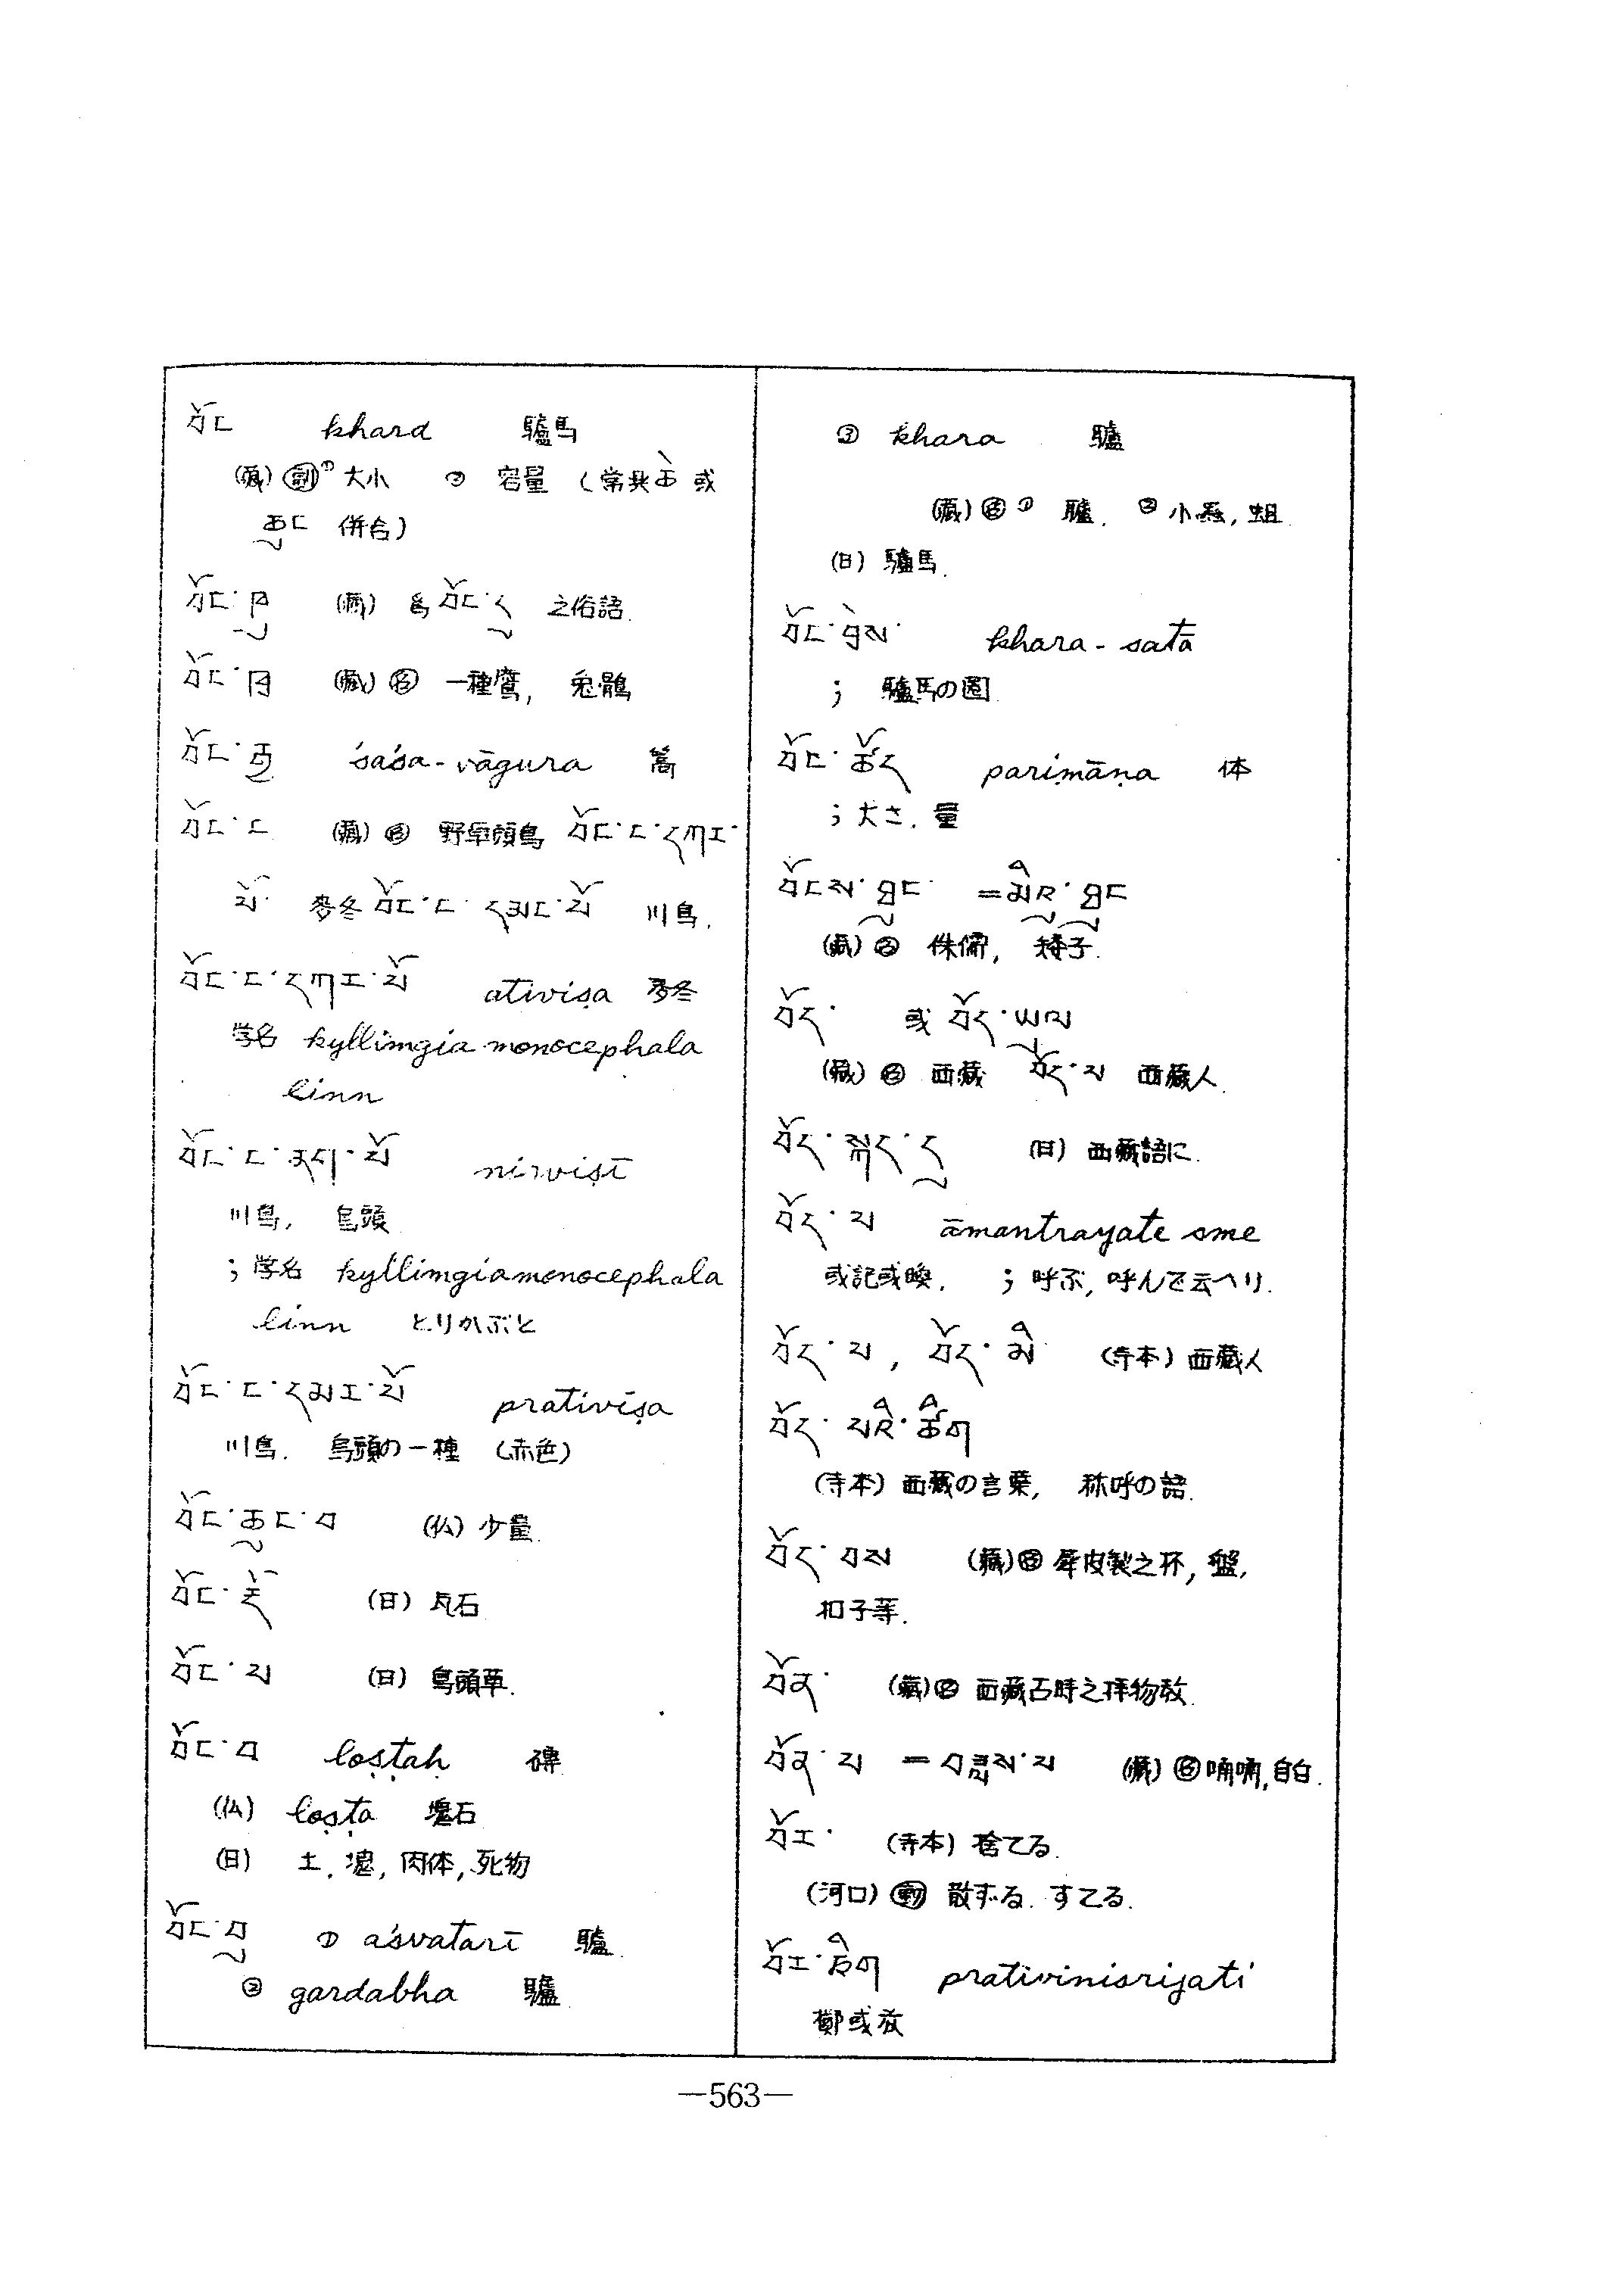 བོང khara 驢馬
(藏) 副 ① 大小 ② 容量 (常與ཆེ 或
ཆུང 併合)
བོང་ཁུ (藏) 爲བོང་ང 之俗語.
བོང་ཁྲ (藏) 名 一種鷹, 兔鶻
བོང་གུ śaśa-vāgura 萵
བོང་ང (藏) 名 野草頭烏 བོང་ང་དཀར་
པོ་ 麥冬 བོང་ང་དམར་པོ 川烏.
བོང་ང་དཀར་པོ ativiṣa 麥冬
学名 kyllimgia monocephala
linn
བོང་ང་ནག་པོ nirviṣī
川烏, 烏頭
; 学名 kyllimgiamonocephala
linn とりかぶと
བོང་ང་དམར་པོ prativiṣa
川烏. 烏頭の一種 (赤色)
བོང་ཆུང་བ (仏) 少量
བོང་ (日) 瓦石
བོང་པ (日) 烏頭草.
བོང་བ loṣṭaḥ 磚
(仏) loṣṭa 塊石
(日) 土, 塊, 肉体, 死物
བོང་བུ ① aśvatarī 驢.
② gardabha 驢
③ khara 驢
(藏) 名 ① 驢. ② 小蟲, 蛆.
(日) 驢馬.
བོང་ khara-satā
; 驢馬の圏
བོང་ཚོད parimāṇa 体
; 大さ. 量
བོངས་ཐུང་ =མིའུ་ཐུང
(藏) 名 侏儒, 矮子.
བོད་ 或 བོད་ཡུལ
(藏) 名 西藏 བོད་པ 西藏人.
བོད་སྐད་དུ (日) 西藏語に.
བོད་པ āmantrayate sme
或記或喚. ; 呼ぶ, 呼んで云へり.
བོད་པ, བོད་མི (寺本) 西藏人
བོད་པའི་ཚིག
(寺本) 西藏の言葉, 称呼の語.
བོད་བས (藏) 名 犀皮製之杯, 盤,
扣子等.
བོན་ (藏) 名 西藏古時之拜物教.
བོན་པ = བཟླས་པ (藏) 名 喃喃, 自白.
བོར་ (寺本) 捨てる.
(河口) 動 散ずる. すてる.
བོར་ཅིག prativinisrijati
擲或放
—563—